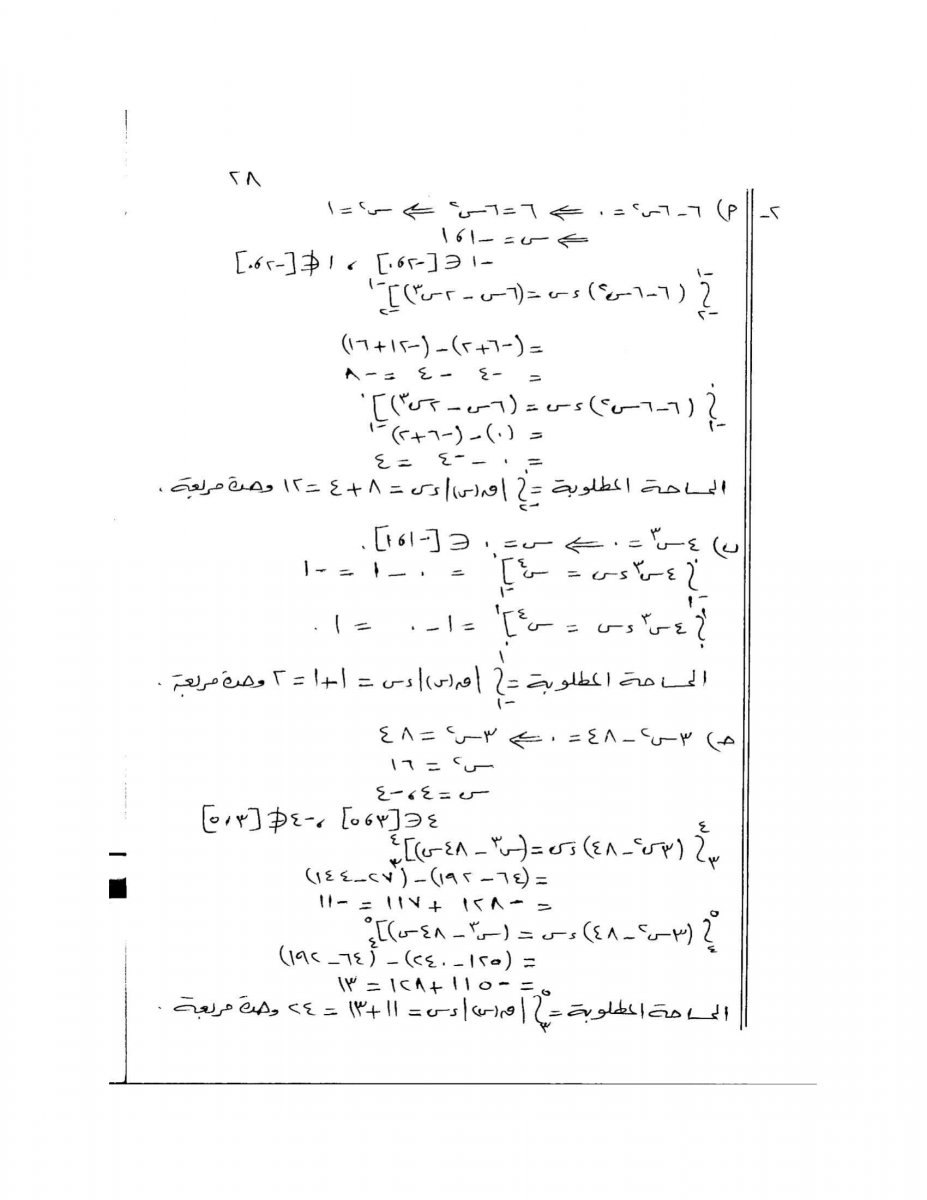 ٢٨
٢- م) ٦-٦س٢ = ٠ ⇐ ٦=٦س٢ ⇐ س٢=١
⇐ س = -١،١
-١∈[-٢،٠] ، ١∉[-٢،٠]
∫ -١ -٢ (٦-٦س٢) ءس = (٦س - ٢س٣)] -١ -٢
= (-٦+٢)-(-١٢+١٦)
= -٤ - ٤ = -٨
∫ ٠ -١ (٦-٦س٢) ءس = (٦س - ٢س٣)] ٠ -١
= (٠) - (-٦+٢)
= ٠ - -٤ = ٤
المساحة المطلوبة = ∫ ٠ -٢ |ق(س)| ءس = ٨+٤ = ١٢ وحدة مربعة .
ب) ٤س٣ = ٠ ⇐ س = ٠ ∈ [-١،١] .
∫ ٠ -١ ٤س٣ ءس = س٤] ٠ -١ = ٠ - ١ = -١
∫ ١ ٠ ٤س٣ ءس = س٤] ١ ٠ = ١ - ٠ = ١ .
المساحة المطلوبة = ∫ ١ -١ |ق(س)| ءس = ١+١ = ٢ وحدة مربعة .
حـ) ٣س٢ - ٤٨ = ٠ ⇐ ٣س٢ = ٤٨
س٢ = ١٦
س = ٤، -٤
٤∈[٣،٥] ، -٤∉[٣،٥]
∫ ٤ ٣ (٣س٢ - ٤٨) ءس = (س٣ - ٤٨س)] ٤ ٣
= (٦٤ - ١٩٢) - (٢٧ - ١٤٤)
= -١٢٨ + ١١٧ = -١١
∫ ٥ ٤ (٣س٢ - ٤٨) ءس = (س٣ - ٤٨س)] ٥ ٤
= (١٢٥ - ٢٤٠) - (٦٤ - ١٩٢)
= -١١٥ + ١٢٨ = ١٣
المساحة المطلوبة = ∫ ٥ ٣ |ق(س)| ءس = ١١+١٣ = ٢٤ وحدة مربعة .